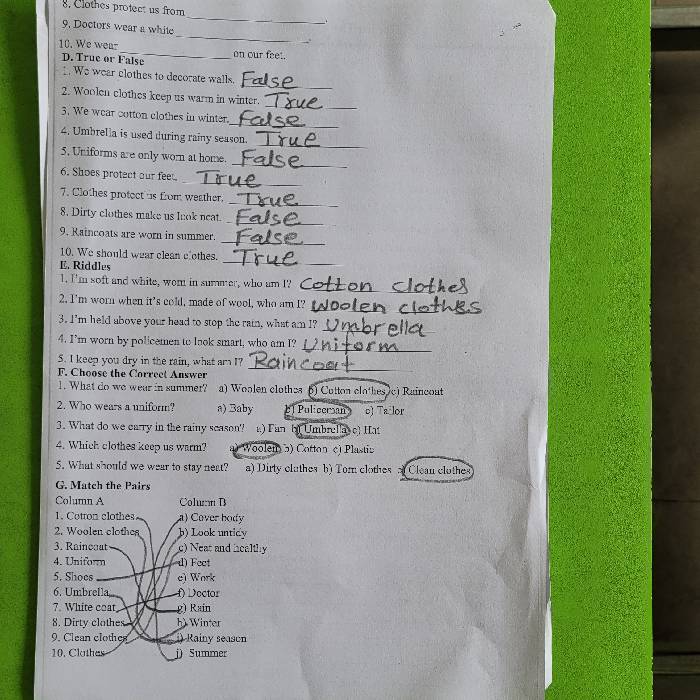 8. Clothes protect us from
9. Doctors wear a white
10. We wear on our feet.
D. True or False
1. We wear clothes to decorate walls. False
2. Woolen clothes keep us warm in winter. True
3. We wear cotton clothes in winter. False
4. Umbrella is used during rainy season. True
5. Uniforms are only worn at home. False
6. Shoes protect our feet. True
7. Clothes protect us from weather. True
8. Dirty clothes make us look neat. False
9. Raincoats are worn in summer. False
10. We should wear clean clothes. True
E. Riddles
1. I'm soft and white, worn in summer, who am I? Cotton clothes
2. I'm worn when it's cold, made of wool, who am I? Woolen clothes
3. I'm held above your head to stop the rain, what am I? Umbrella
4. I'm worn by policemen to look smart, who am I? Uniform
5. I keep you dry in the rain, what am I? Raincoat
F. Choose the Correct Answer
1. What do we wear in summer? a) Woolen clothes b) Cotton clothes c) Raincoat
2. Who wears a uniform? a) Baby b) Policeman c) Tailor
3. What do we carry in the rainy season? a) Fan b) Umbrella c) Hat
4. Which clothes keep us warm? a) Woolen b) Cotton c) Plastic
5. What should we wear to stay neat? a) Dirty clothes b) Torn clothes c) Clean clothes
G. Match the Pairs
Column A Column B
1. Cotton clothes a) Cover body
2. Woolen clothes b) Look untidy
3. Raincoat c) Neat and healthy
4. Uniform d) Feet
5. Shoes e) Work
6. Umbrella f) Doctor
7. White coat g) Rain
8. Dirty clothes h) Winter
9. Clean clothes i) Rainy season
10. Clothes j) Summer